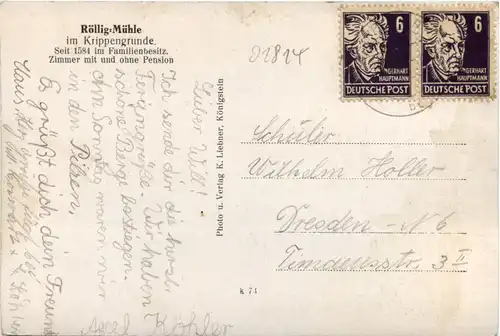 Röllig-Mühle
im Krippengrunde.
Seit 1584 im Familienbesitz.
Zimmer mit und ohne Pension
Lieber Willi!
Ich sende dir die herzl.
Feriengrüße. Wir haben
schöne Berge bestiegen.
Am Sonntag waren wir
in den Pilsen.
Es grüßt dich dein Freund
Axel Köhler
Photo u. Verlag K. Liebner, Königstein
k 74
6
GERHART
HAUPTMANN
DEUTSCHE POST
6
GERHART
HAUPTMANN
DEUTSCHE POST
Schüler
Wilhelm Holler
Dresden - N 6
3 II